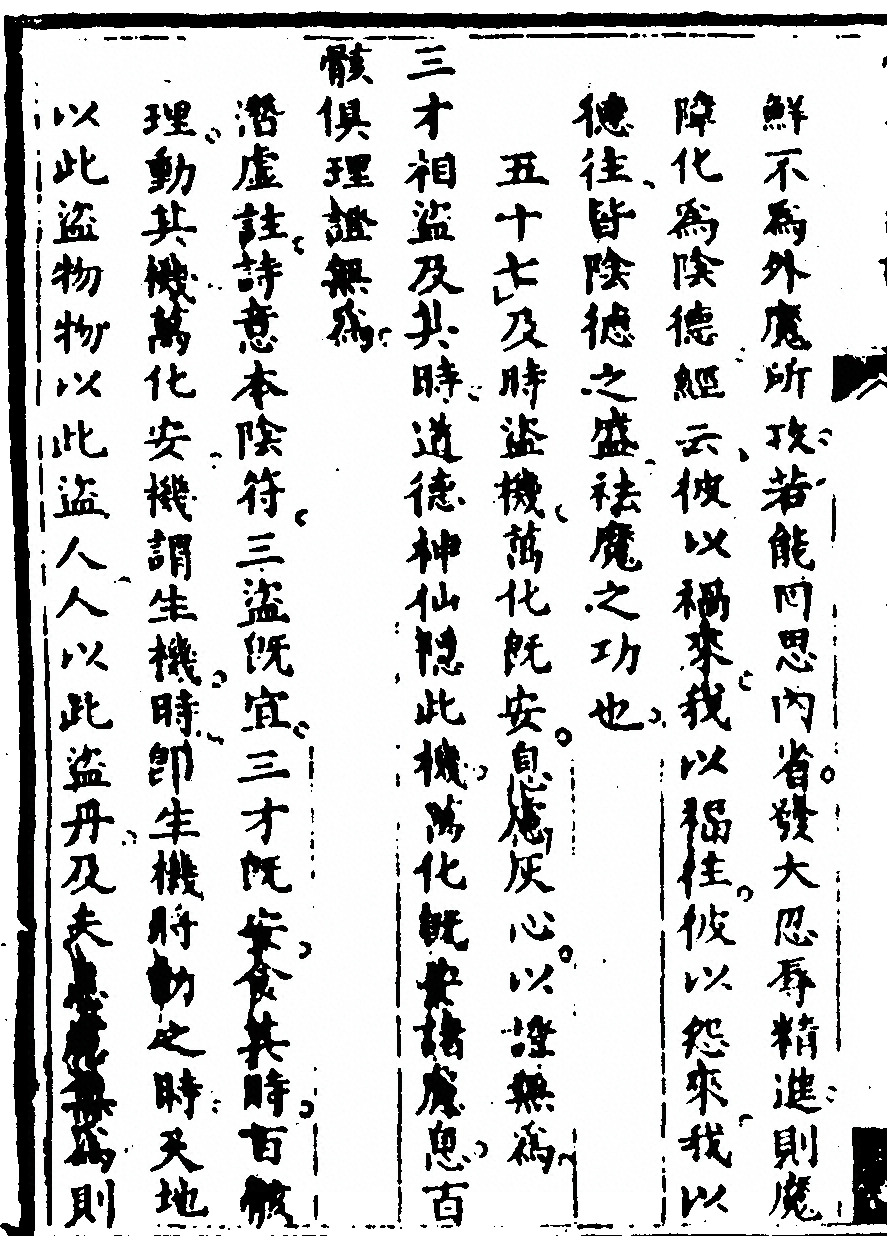 鮮不爲外魔所攻若能回思內省發大忍辱精進則魔
障化爲陰德經云彼以禍來我以福往彼以怨來我以
德往皆陰德之盛袪魔之功也
五十七及時盜機萬化既安息慮灰心以證無爲
三才相盜及其時道德神仙隱此機萬化既安諸慮息百
骸俱理證無爲
潛虛註詩意本陰符三盜既宜三才既安食其時百骸
理動其機萬化安機謂生機時卽生機將動之時天地
以此盜物物以此盜人人以此盜丹及夫息慮無爲則